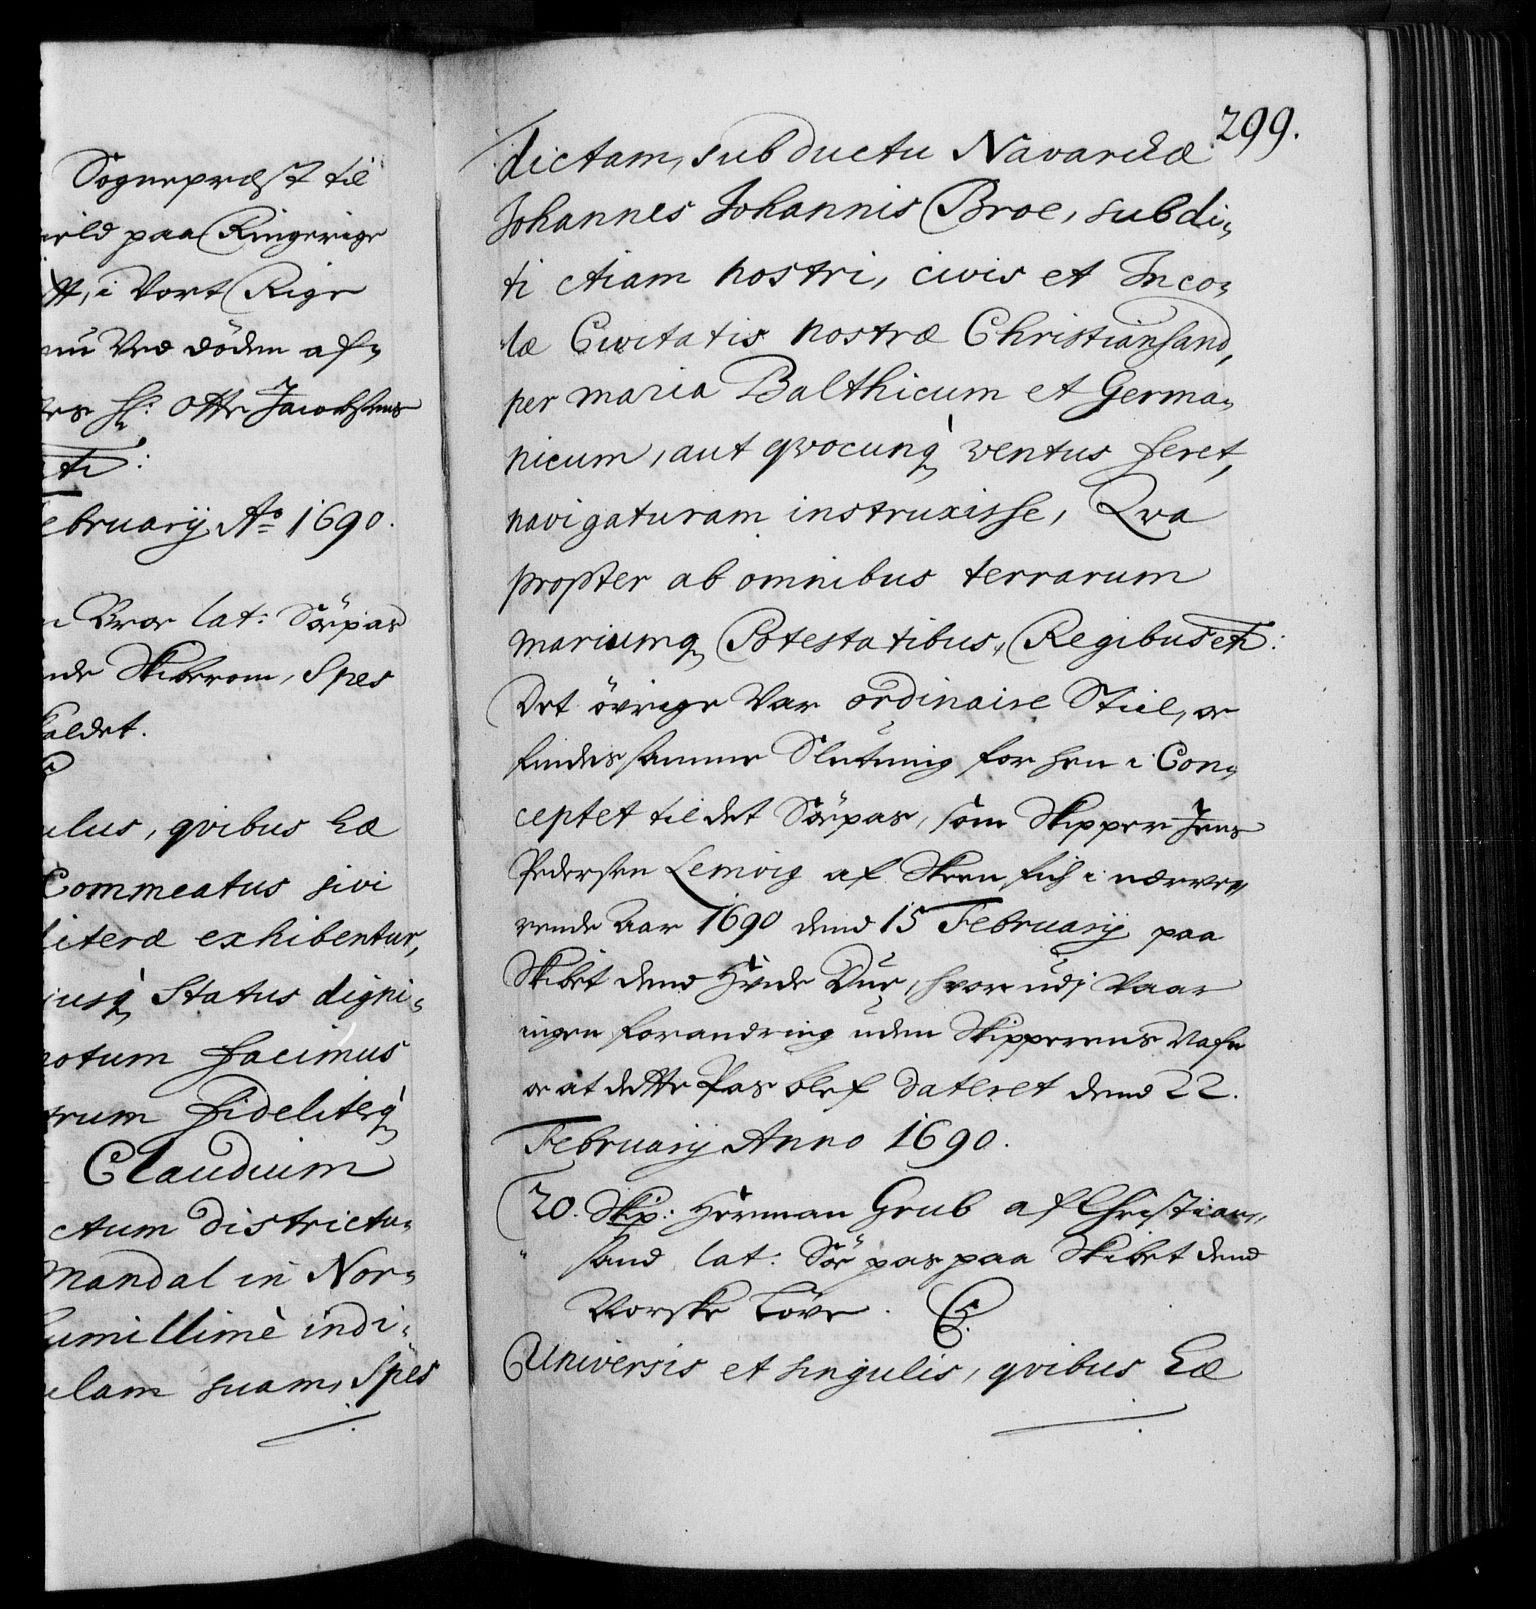 Sognepræst til
ield paa Ringerige
tt, i Vort Rige
nu Ved döden af-
Hr: Otte Jacobsens
etc:
ebruarij Ao 1690.
Broe lat: Söepas
nde Skiberom, Spes
kaldet.
ulus, qvibus hæ
Commeatus sivi
literæ exhibentur,
iusq Status digni-
notum facimus
trum fideliterq
Claudium
ctum districtu-
Mandal in Nor-
humillimè indi-
ulam suam, Spes
299.
dictam, sub ductu Navarchæ
Johannes Johannis Broe, subdi-
ti etiam nostri, civis et Inco-
læ Civitatis nostræ Christiansand,
per maria Balthicum et Germa-
nicum, aut qvocunq ventus feret,
navigaturam instruxisse, Qva
propter ab omnibus terrarum
mariumq Potestatibus, Regibus etc:
Det övrige Var ordinaire Stiil, oc
findes samme Slutning for hen i Con-
ceptet til det Söepas, som Skipper Jens
Pedersen Lemvig af Skeen fich i nærve-
rende Aar 1690 dend 15 Februarij paa
Skibet dend Hvide Due, hvor udj Vaar
ingen forandring uden Skipperens Nafn
oc at dette Pas blef Dateret dend 22.
Februarij Anno 1690.
20. Skip: Herman Grub af Christian-
sand lat: Söe pas paa Skibet dend
Norske Löve. C5.
Universis et singulis, qvibus hæ